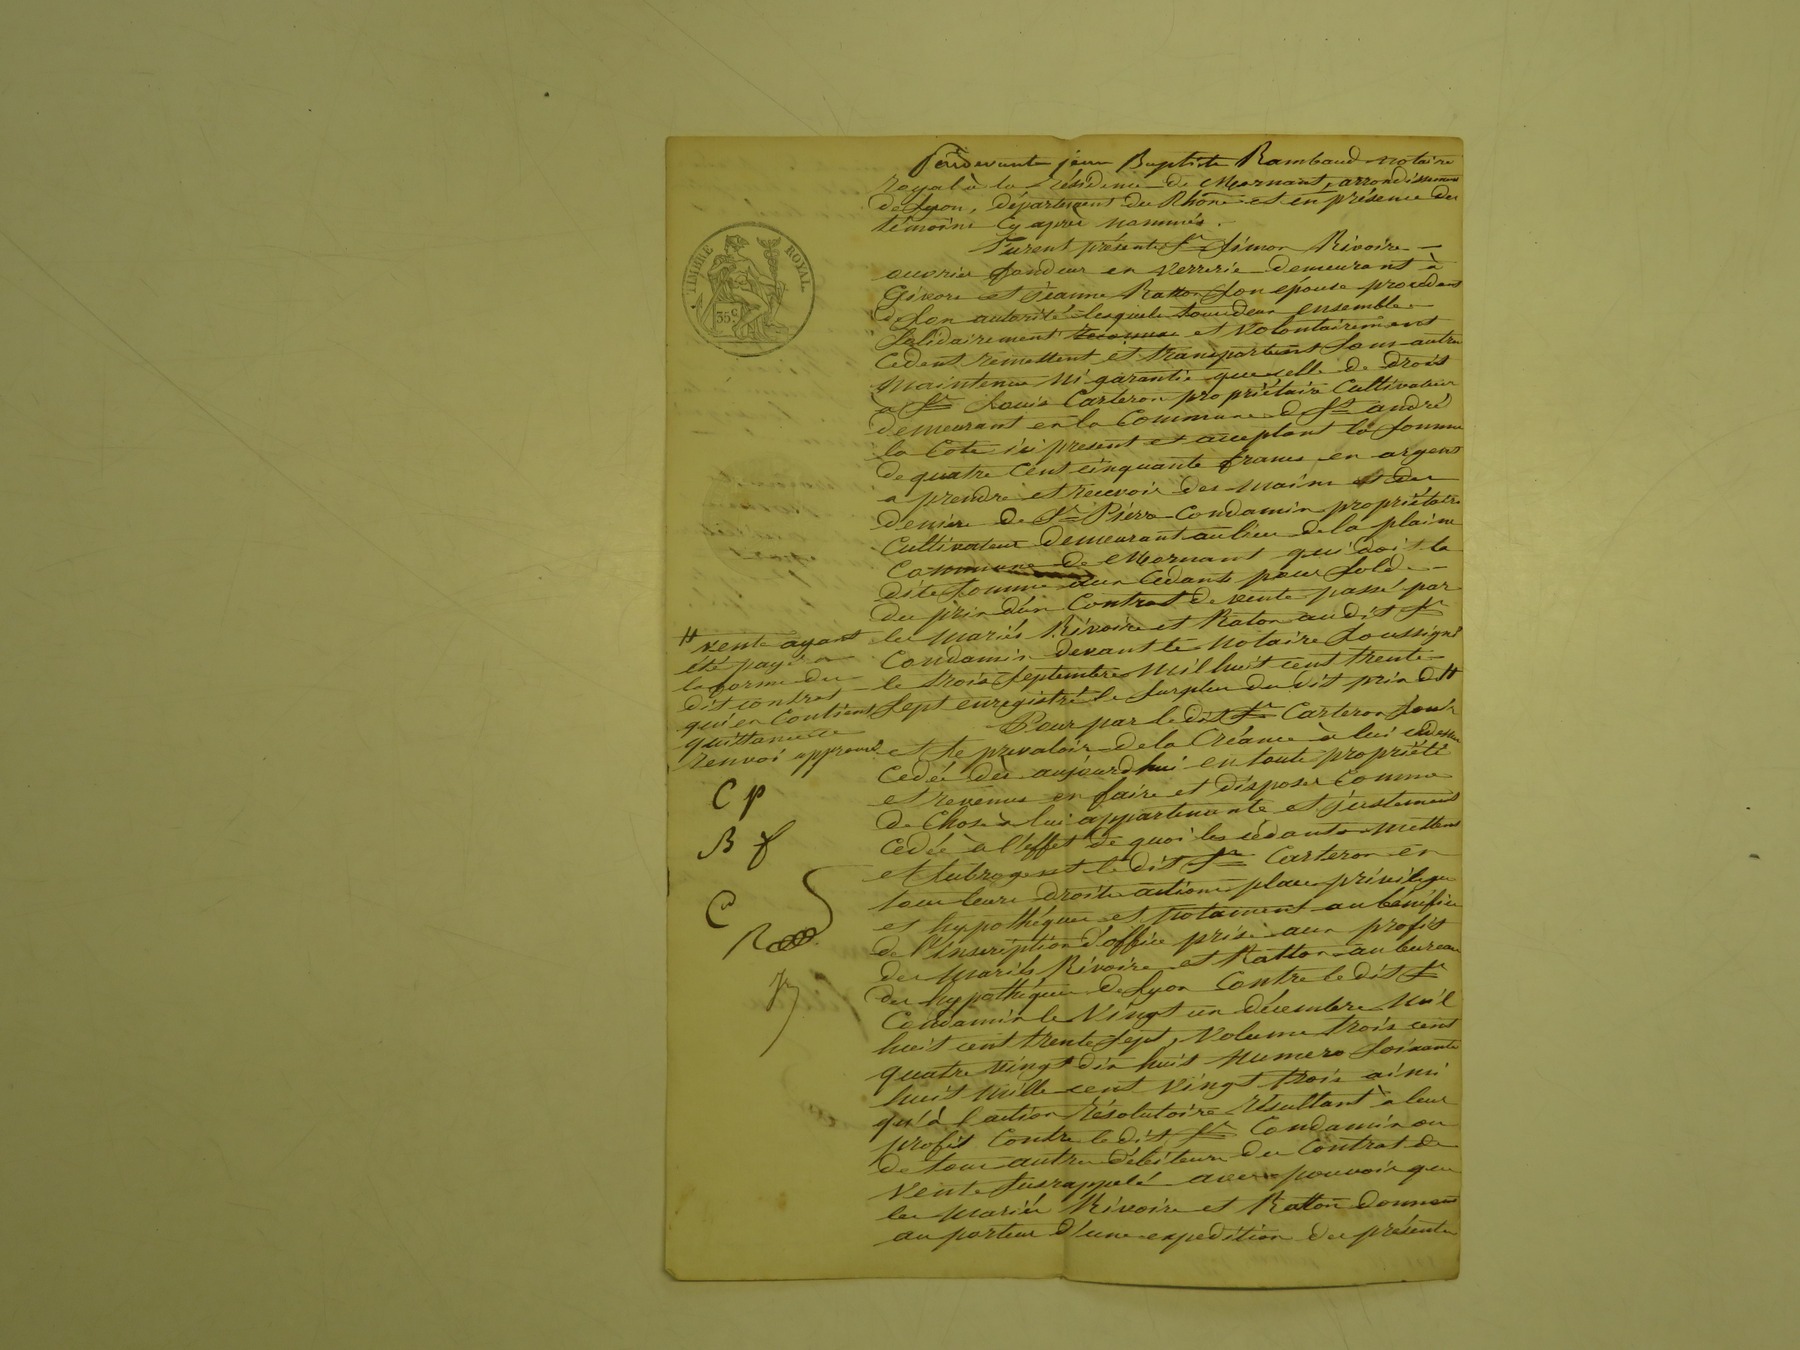 Pardevant jean Baptiste Rambaud notaire
royal à la résidence de Mornant, arrondissement
de Lyon, département du Rhône et en présence des
témoins cy après nommés.
Furent présents Sr Simon Rivoire
ouvrier fondeur en verrerie demeurant à
Givors et jeanne Ratton son épouse procédant
de son autorité lesquels tous deux ensemble
solidairement et volontairement
cedent remettent et transportent sans autre
maintenue ni garantie que celle de droit
a Sr Louis Carteron propriétaire Cultivateur
demeurant en la Commune de St andré
la Cote ici present et acceptant la somme
de quatre cent cinquante francs en argent
a prendre et recevoir des mains et des
deniers de Sr Pierre Condamin propriétaire
Cultivateur demeurant au lieu de la plaine
Commune de Mornant qui doit la
dite somme aux cedants pour solde
du prix d'un Contrat de vente passé par
les mariés Rivoire et Raton au dit Sr
Condamin devant le notaire soussigné
le trois septembre mil huit cent trente
sept enregistré le surplus du dit prix de #
Pour par le dit Sr Carteron jouir
et se prévaloir de la Créance à lui cidessus
cedée dès aujourd'hui en toute propriété
et revenus en faire et disposer comme
de Chose à lui appartenante et justement
cedée à l'effet de quoi les cédants mettent
et subrogent le dit Sr Carteron en
tous leurs droits actions place privilege
et hypothéques et notament au benéfice
de l'inscription d'office prise aux profit
des mariés Rivoire et Ratton au bureau
des hypothéques de Lyon Contre le dit Sr
Condamin le vingt un décembre mil
huit cent trente sept, volume trois cent
quatre vingt dix huit numero soixante
huit mille cent vingt trois ainsi
qu'à l'action résolutoire résultant à leur
profit Contre le dit Sr Condamin ou
de tous autres débiteurs du Contrat de
vente susrappelé avec pouvoir que
les mariés Rivoire et Ratton donnent
au porteur d'une expedition des présentes
TIMBRE ROYAL
35 c
# vente ayant
été payé
la forme du
dit contrat
qui en Contient
quittance
renvoi approuvé
C p
B f
C
R